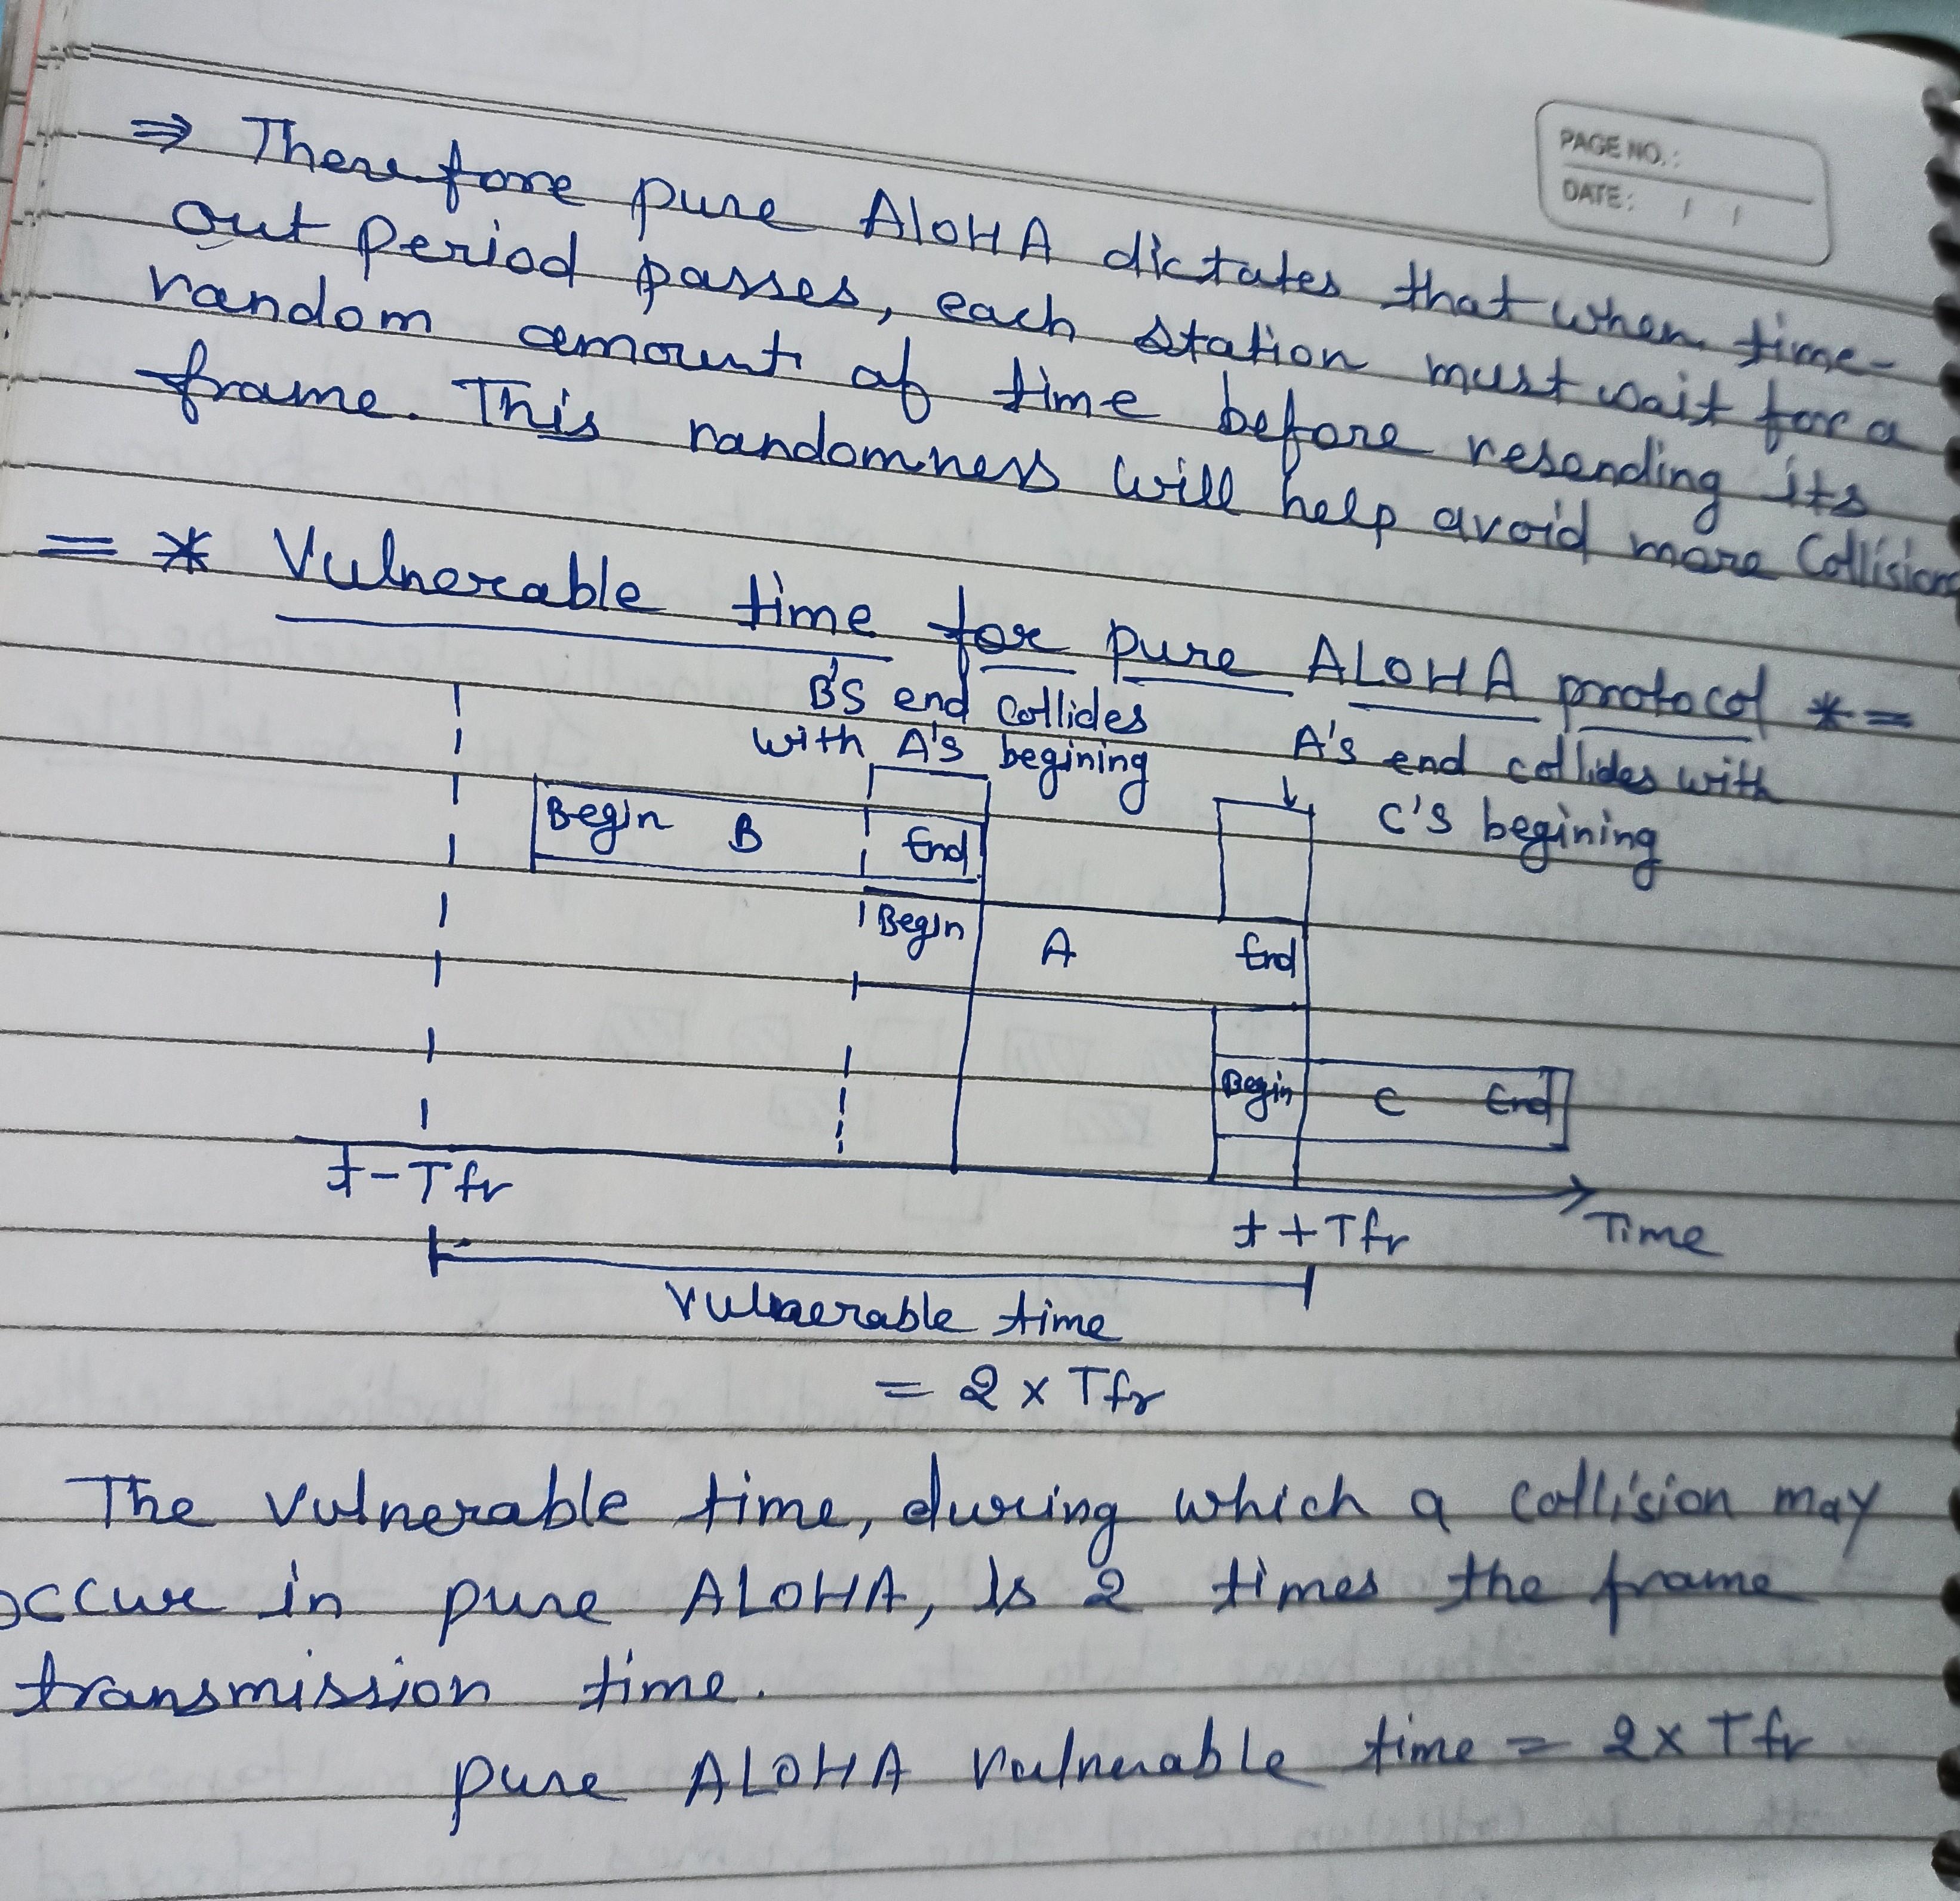 PAGE NO.:
DATE: / /
⇒ Therefore pure AloHA dictates that when time-
out period passes, each station must wait for a
random amount of time before resending its
frame. This randomness will help avoid more Collision
= * Vulnerable time for pure ALOHA protocol * =
B'S end collides
with A's begining
A's end collides with
C's begining
Begin B End
Begin A End
Begin C End
t-Tfr
t+Tfr
Time
Vulnerable time
= 2 x Tfr
The vulnerable time, during which a collision may
occur in pure ALOHA, Is 2 times the frame
transmission time.
pure ALOHA vulnerable time = 2x Tfr